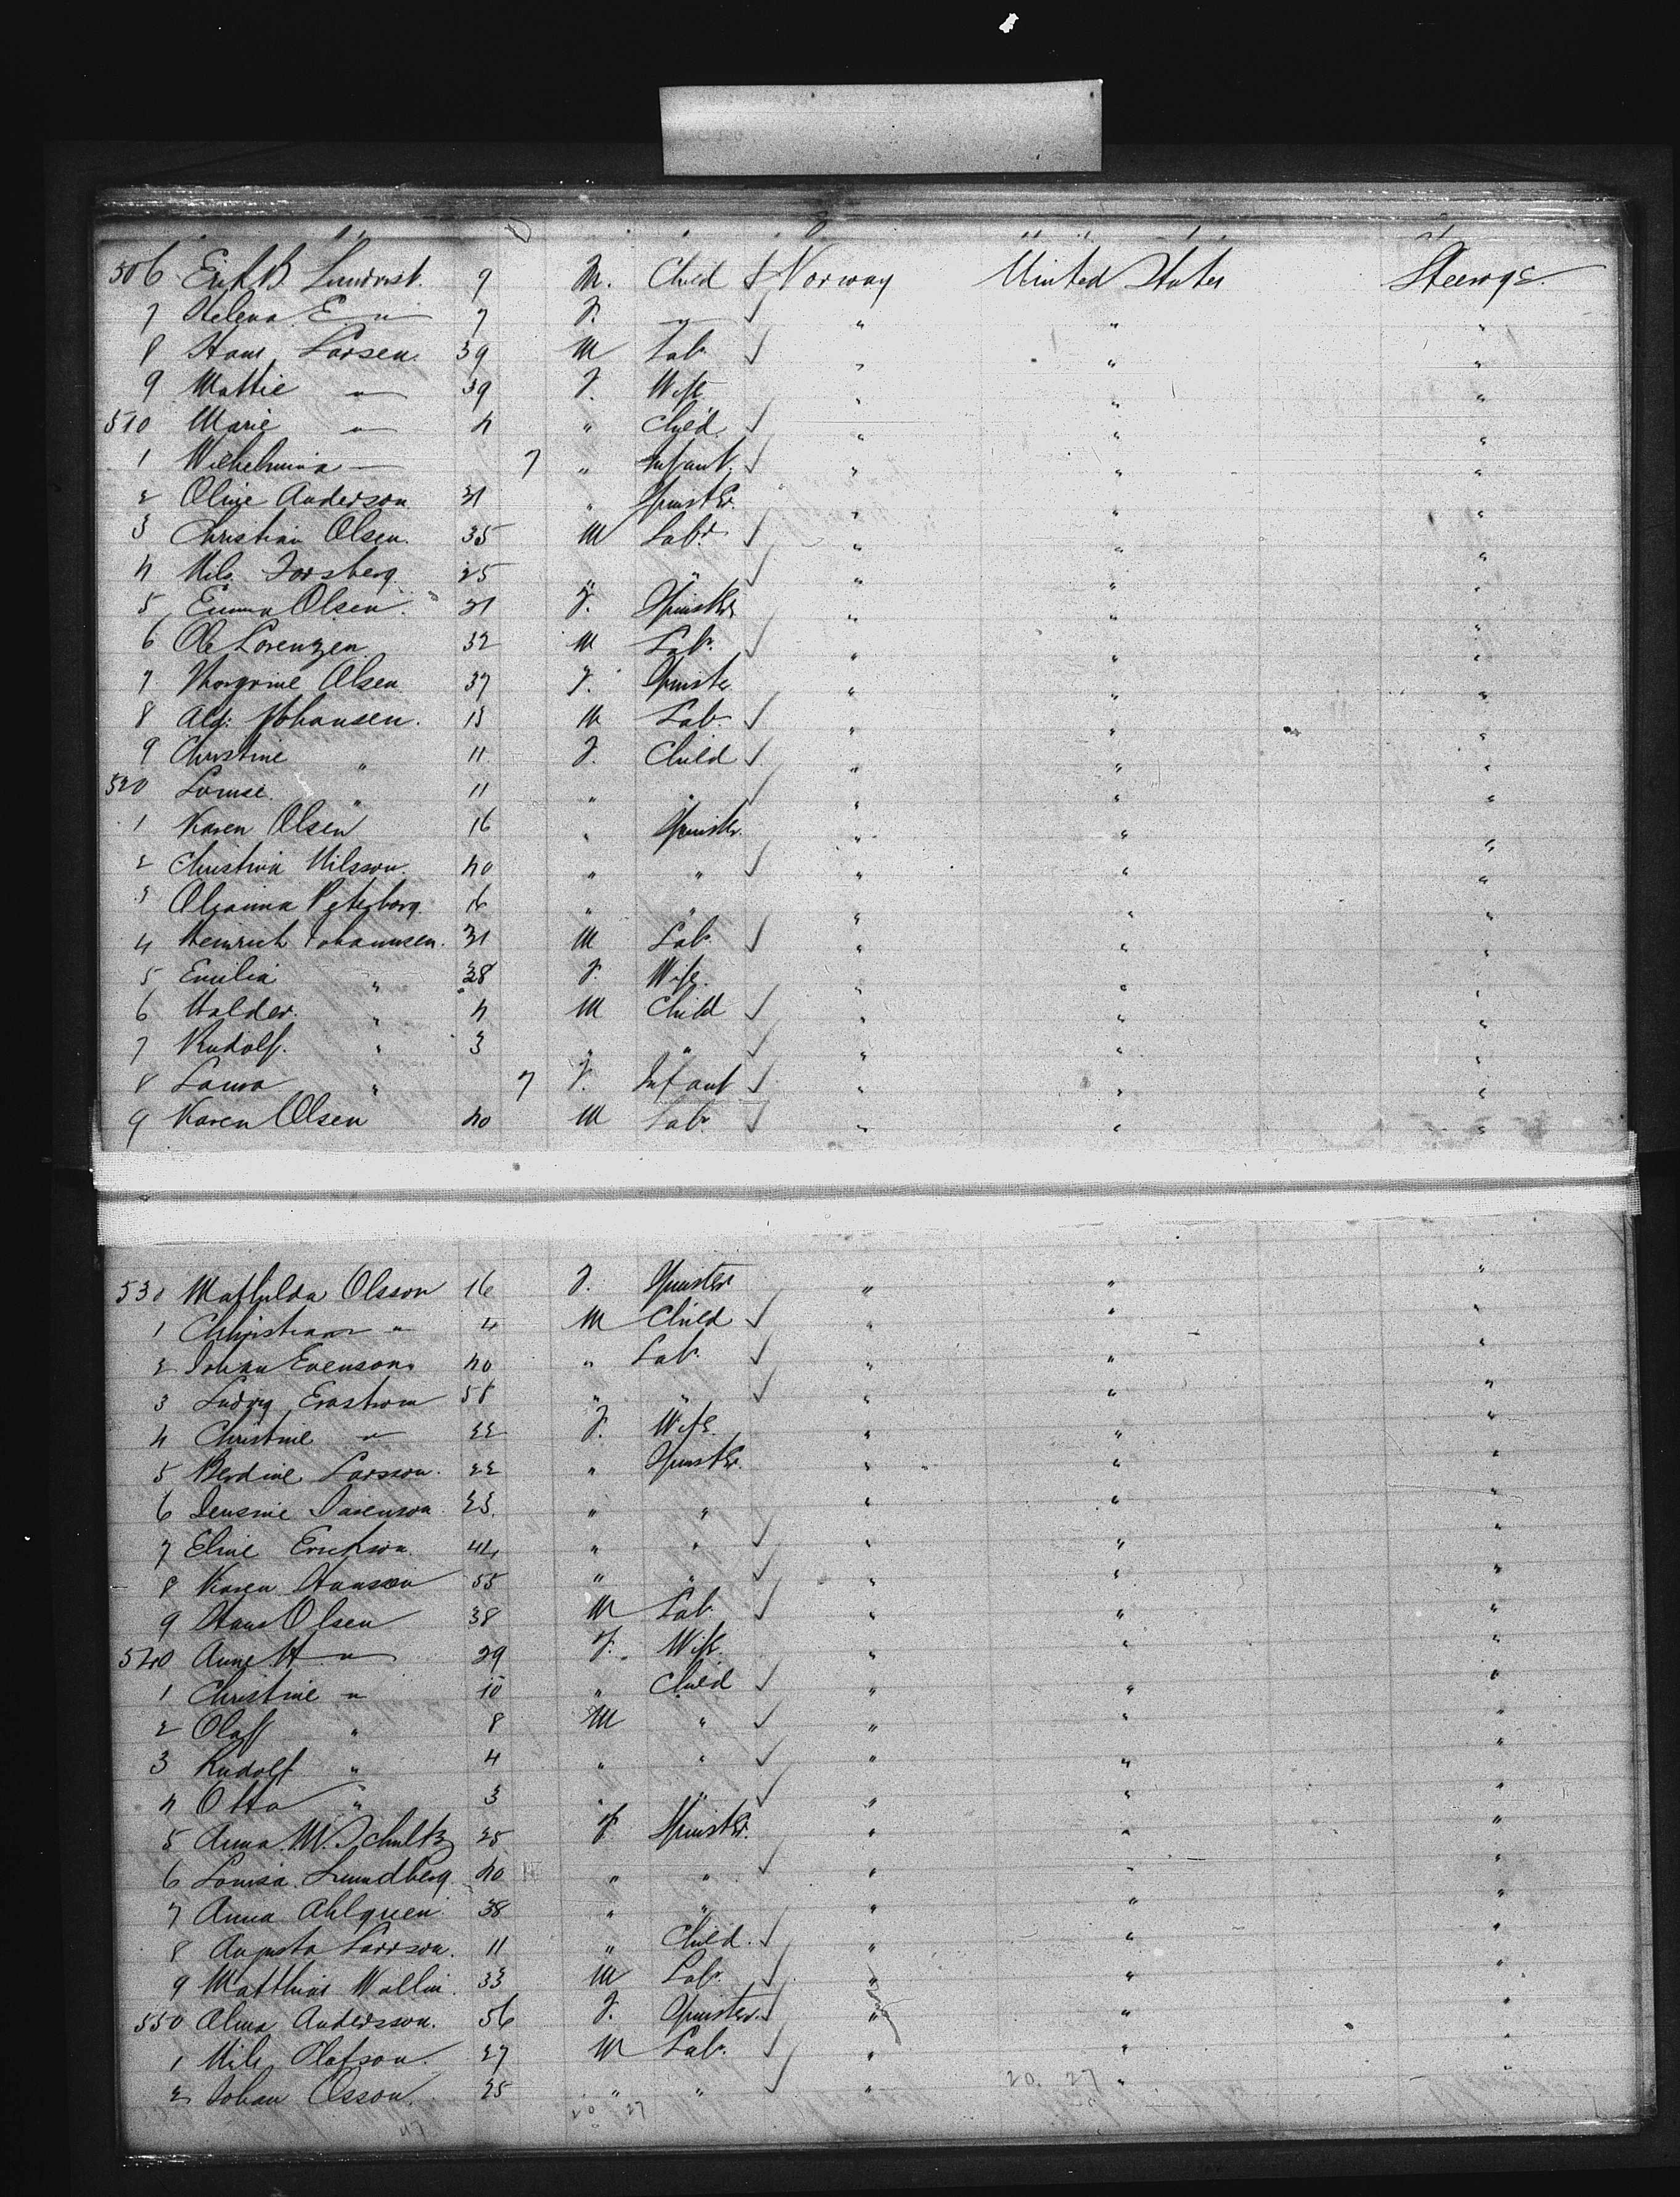 506 Erik B. Lundqvist. 9 M. Child ✓ Norway United States Steerage.
7 Helena E " 7 F. " ✓ " " "
8 Hans Larsen 39 M Lab. ✓ " " "
9 Mattie " 39 F. Wife " " "
510 Marie " 4 " Child ✓ " " "
1 Wilhelmina " 7 " Infant ✓ " " "
2 Oline Anderson 31 " Spinster " " "
3 Christian Olsen. 35 M Labr ✓ " " "
4 Nils Forsberg 25 " " ✓ " " "
5 Emma Olsen. 21 F. Spinster " " "
6 Ole Lorenzen 32 M Lab. ✓ " " "
7 Olsen 37 F. Spinster " " "
8 Alf. Johansen. 13 M Lab. ✓ " " "
9 Christine " 11 F. Child ✓ " " "
520 Louise " 11 " " ✓ " " "
1 Karen Olsen 16 " Spinster " " "
2 Christina Nilsson. 40 " " ✓ " " "
3 16 " " " " "
4 Heinrich Johannsen. 31 M Lab. ✓ " " "
5 Emilia " 28 F. Wife. " " "
6 Halder. " 4 M Child ✓ " " "
7 Rudolf. " 3 " " ✓ " " "
8 Laura " 7 F. Infant ✓ " " "
9 Karen Olsen 40 M Lab. ✓ " " "
530 Mathilda Olsson 16 F. Spinster " " "
1 Christian " 4 M Child ✓ " " "
2 Johan Evenson 40 " Lab. ✓ " " "
3 Ludvig Enstrom 58 " " ✓ " " "
4 Christine " 22 F. Wife. " " "
5 Berdine Larsson. 22 " Spinster. " " "
6 23. " " " " "
7 Eline Erickson. 44 " " ✓ " " "
8 Karen Hansen 55 " " ✓ " " "
9 Hans Olsen 38 M Lab. ✓ " " "
540 Anne H " 29 F. Wife. " " "
1 Christine " 10 " Child ✓ " " "
2 Olaf " 8 M " ✓ " " "
3 Rudolf " 4 " " ✓ " " "
4 Otto " 3 " " ✓ " " "
5 Anna M. Schultz 25 F Spinster. " " "
6 Louisa Lundberg 40 " " ✓ " " "
7 Anna Ahlquen 38 " " " " "
8 Augusta Larsson. 11 " Child. ✓ " " "
9 Matthias Wallin. 33 M Lab. ✓ " " "
550 Alma Andersson. 56 F. Spinster. ✓ " " "
1 Nils Olafson. 27 M Lab. ✓ " " "
2 Johan Osson. 25 " " ✓ " " "
20 27
20 27